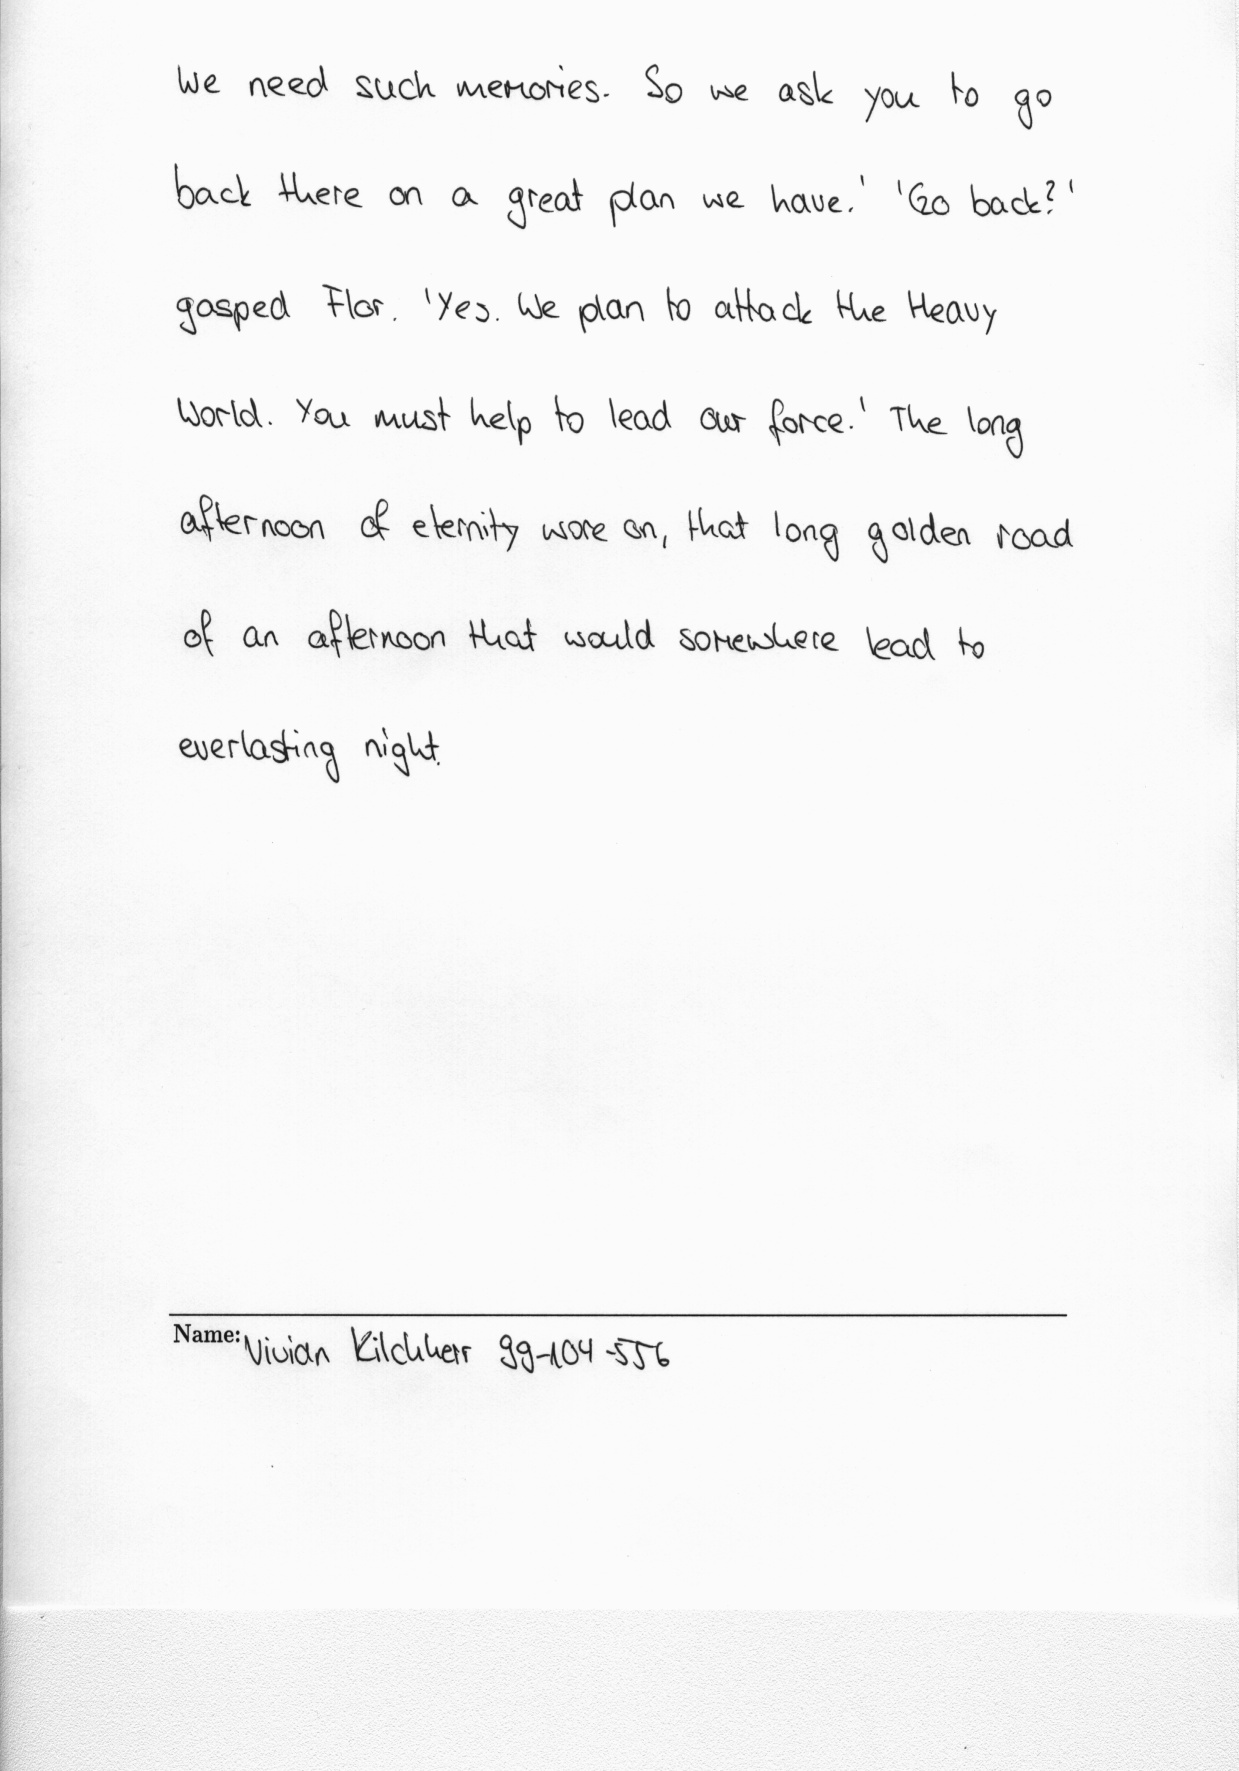 We need such memories. So we ask you to go
back there on a great plan we have.' 'Go back?'
gasped Flor. 'Yes. We plan to attack the Heavy
World. You must help to lead our force.' The long
afternoon of eternity wore on, that long golden road
of an afternoon that would somewhere lead to
everlasting night.
Name: Vivian Kilchherr 99-104-556